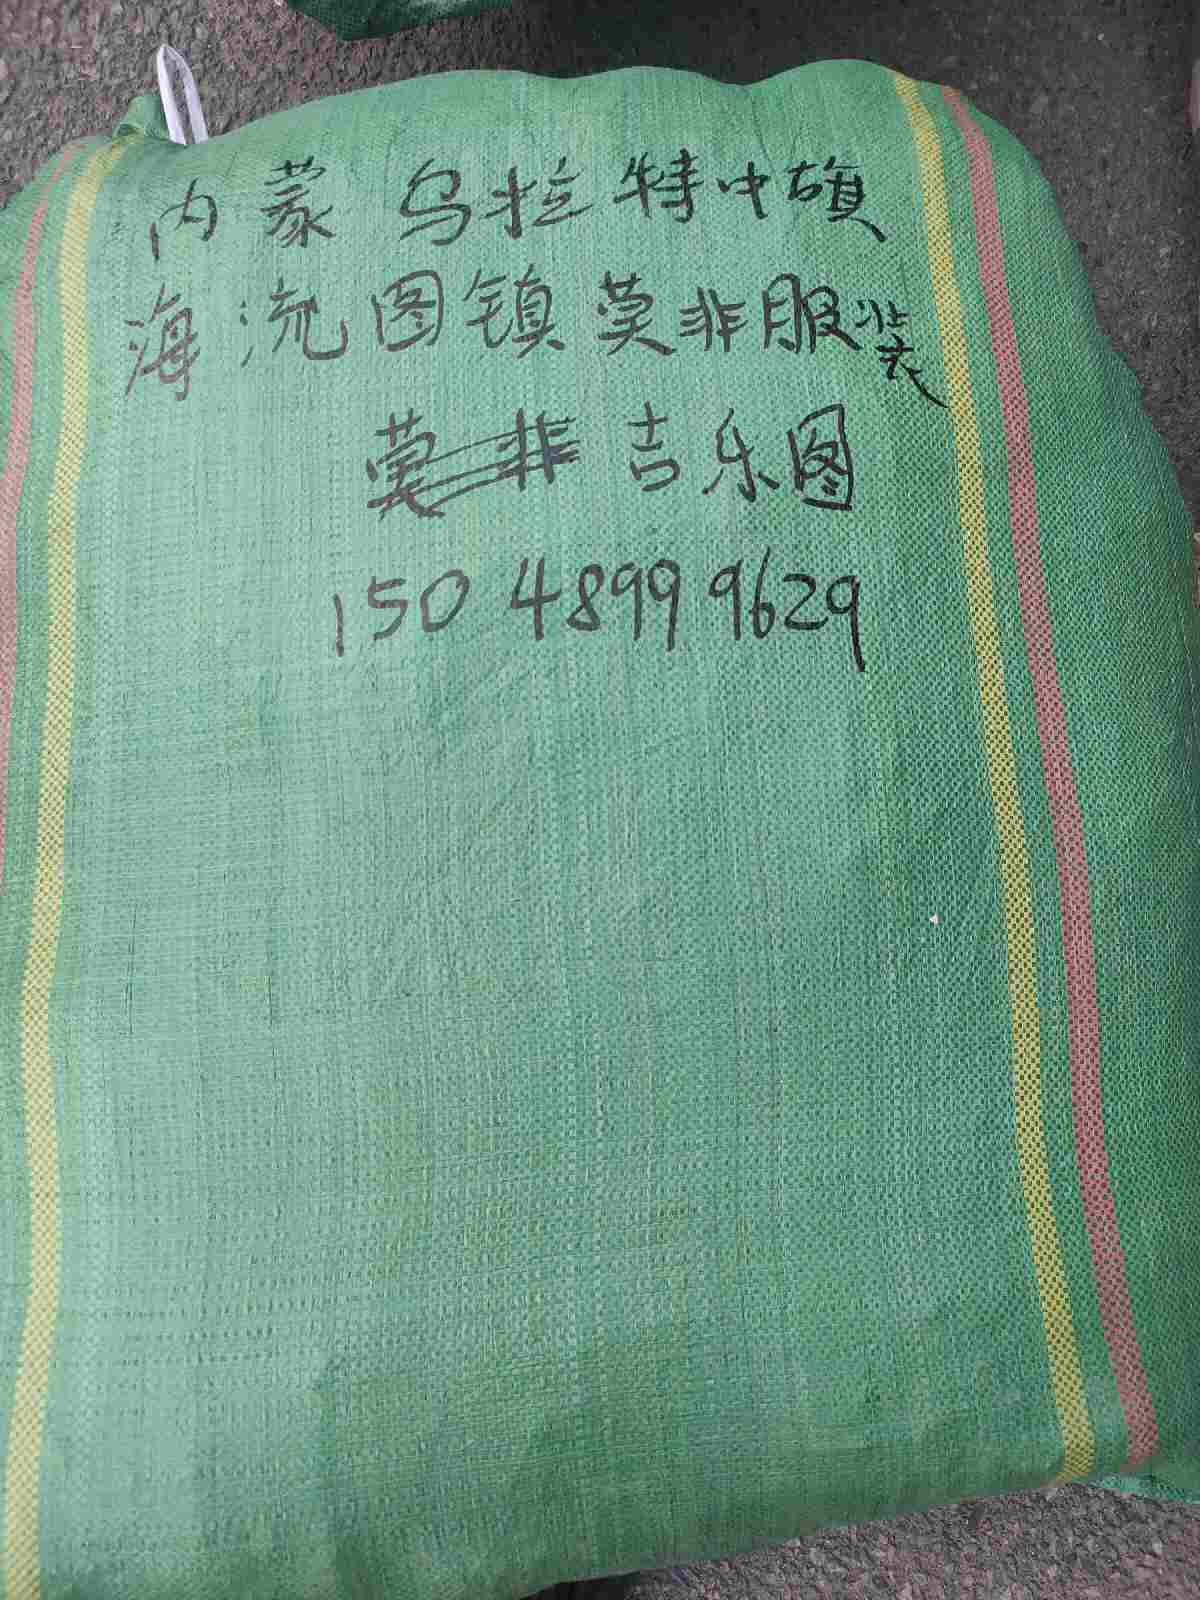 内蒙乌拉特中旗
海流图镇莫非服装
莫非吉乐图
150 4899 9629